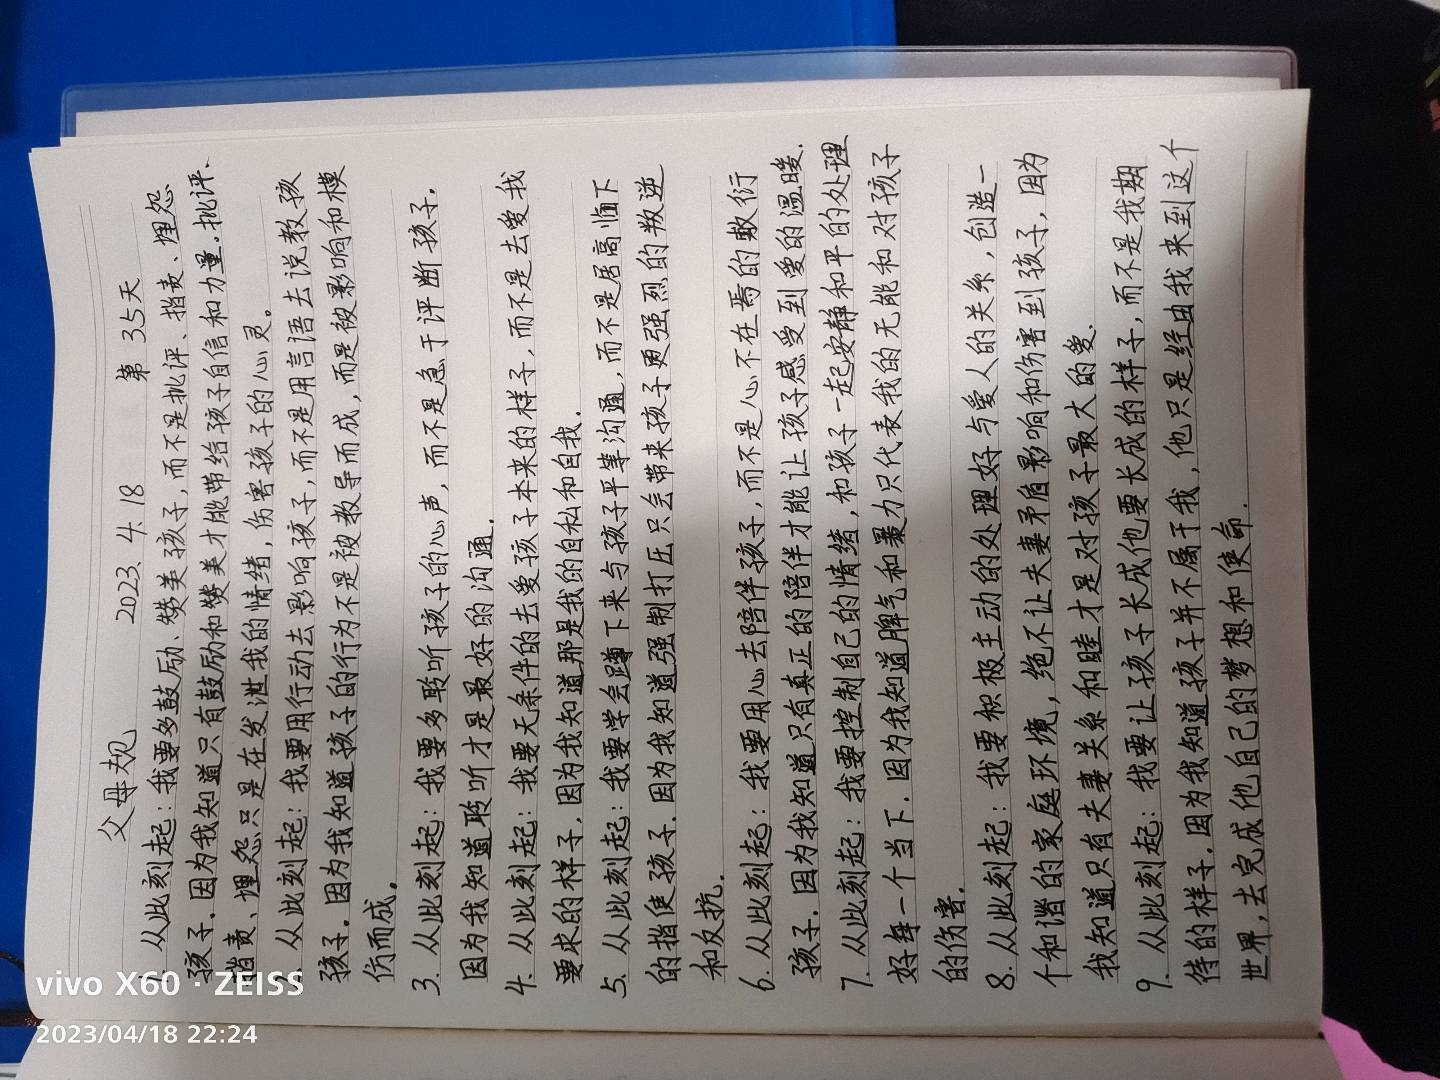 父母规 2023.4.18 第35天
从此刻起：我要多鼓励、赞美孩子，而不是批评、指责、埋怨
孩子．因为我知道只有鼓励和赞美才能带给孩子自信和力量．批评、
指责、埋怨只是在发泄我的情绪，伤害孩子的心灵。
从此刻起：我要用行动去影响孩子，而不是用言语去说教孩
孩子．因为我知道孩子的行为不是被教导而成，而是被影响和模
仿而成．
3．从此刻起：我要多聆听孩子的心声，而不是急于评断孩子．
因为我知道聆听才是最好的沟通．
4．从此刻起：我要无条件的去爱孩子本来的样子，而不是去爱我
要求的样子，因为我知道那是我的自私和自我．
5．从此刻起：我要学会蹲下来与孩子平等沟通，而不是居高临下
的指使孩子．因为我知道强制打压只会带来孩子更强烈的叛逆
和反抗．
6．从此刻起：我要用心去陪伴孩子，而不是心不在焉的敷衍
孩子．因为我知道只有真正的陪伴才能让孩子感受到爱的温暖．
7．从此刻起：我要控制自己的情绪，和孩子一起安静和平的处理
好每一个当下．因为我知道脾气和暴力只代表我的无能和对孩子
的伤害．
8．从此刻起：我要积极主动的处理好与爱人的关系，创造一
个和谐的家庭环境，绝不让夫妻矛盾影响和伤害到孩子，因为
我知道只有夫妻关系和睦才是对孩子最大的爱．
9．从此刻起：我要让孩子长成他要长成的样子，而不是我期
待的样子．因为我知道孩子并不属于我，他只是经由我来到这个
世界，去完成他自己的梦想和使命．
vivo X60 · ZEISS
2023/04/18 22:24